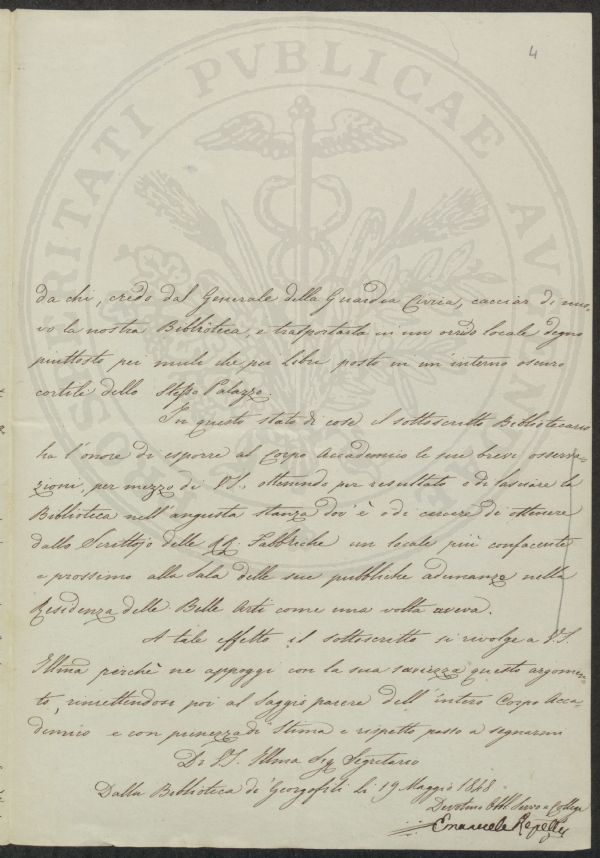 4
PROSPERITATI PVBLICAE AVGENDAE
da chi, credo dal Generale della Guardia Civica, cacciar di nuo-
vo la nostra Biblioteca, e trasportarla in un orrido locale degno
piuttosto pei muli che per libri posto in un'interno oscuro
cortile dello Stesso Palazzo.
In questo stato di cose il sottoscritto Bibliotecario
ha l'onore di esporre al Corpo Accademico le sue brevi osserva-
zioni, per mezzo di VS., ottenendo per resultato o di lasciare la
Biblioteca nell'angusta stanza dov'è o di cercare di ottenere
dallo Scrittojo delle RR. Fabbriche un locale più confacente
e prossimo alla Sala delle sue pubbliche adunanze nella
Residenza delle Belle Arti come una volta aveva.
A tale effetto il sottoscritto si rivolge a V.S.
Illma perchè ne appoggi con la sua saviezza questo argomen-
to, rimettendosi poi al saggio parere dell'intero Corpo Acca-
demico e con pienezza di Stima e rispetto passo a segnarmi
Di V.S. Illma Sig Segretario
Dalla Biblioteca de' Georgofili li 19 Maggio 1848
Devotmo Obb. Servo e Collega
Emanuele Repetti